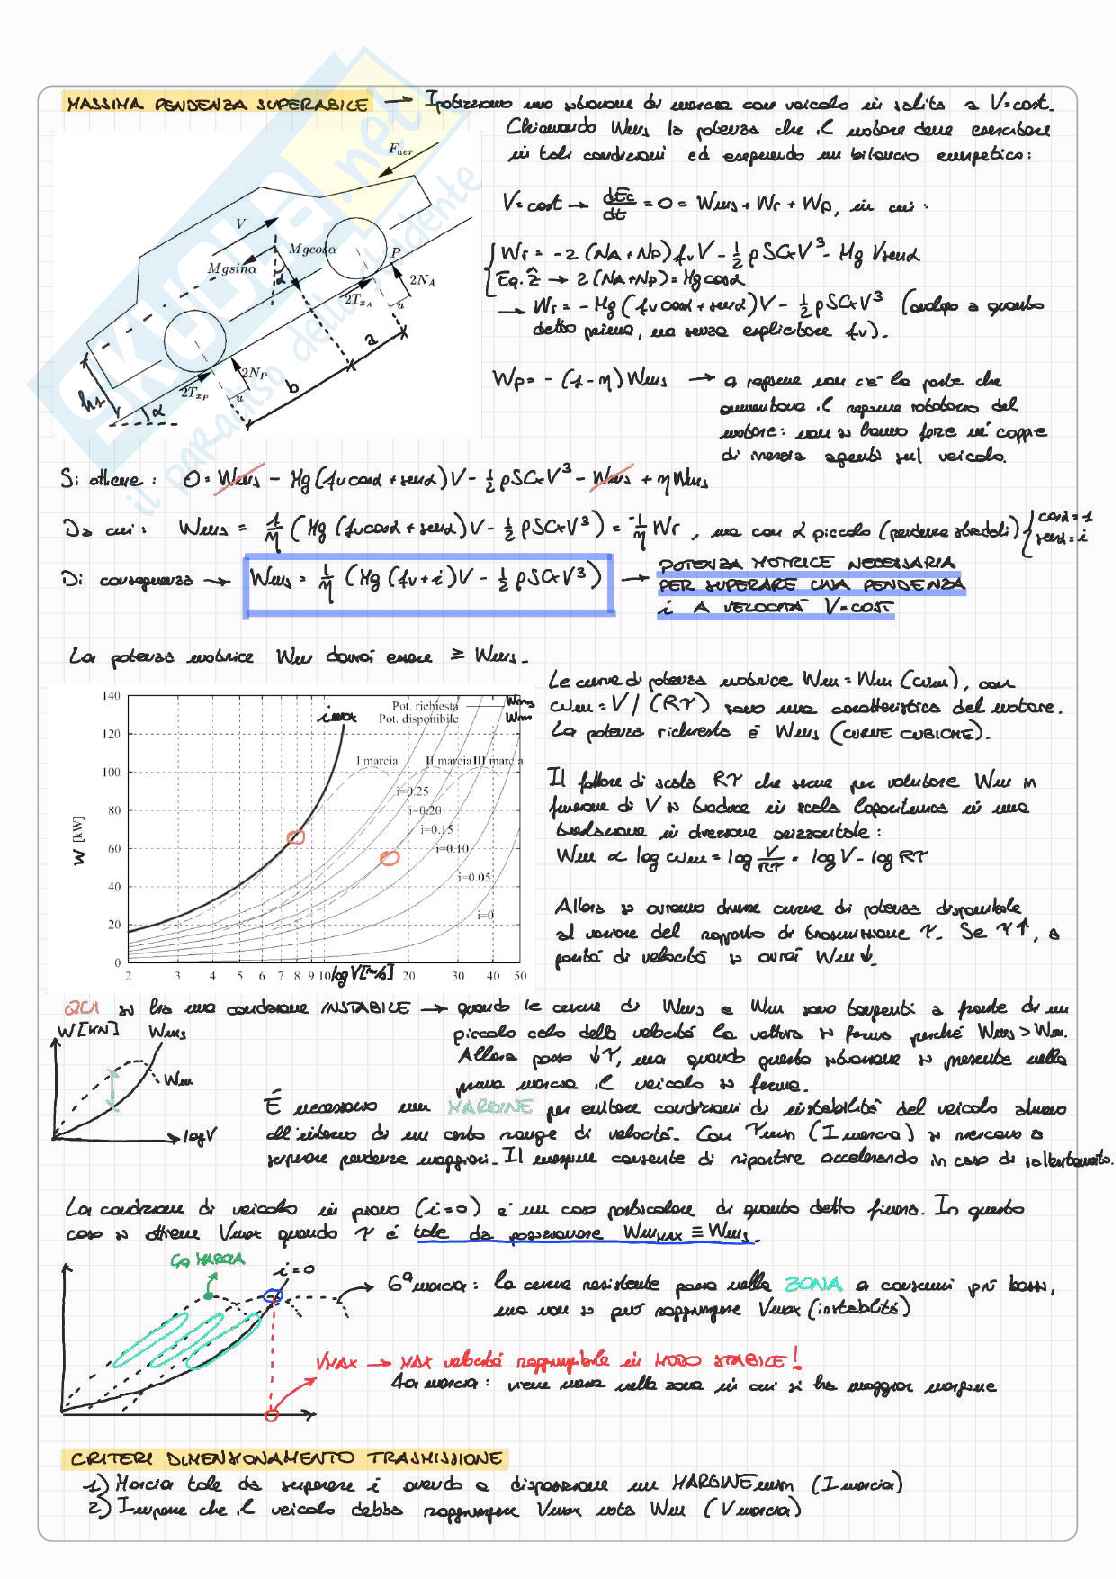 MASSIMA PENDENZA SUPERABILE → Ipotizziamo una situazione di marcia con veicolo in salita a V=cost.
Chiamando Wms la potenza che il motore deve esercitare
in tali condizioni ed eseguendo un bilancio energetico:
V=cost → dEc/dt = 0 = Wms + Wr + Wp, in cui:
Wr = -2 (NA+NP) fv V - 1/2 ρSCxV³ - Mg V senα
Eq. ẑ → 2 (NA+NP) = Mg cosα
→ Wr = - Mg (fv cosα + senα) V - 1/2 ρSCxV³ (analogo a quanto
detto prima, ma senza esplicitare fv).
Wp = - (1-η) Wms → a regime non c'è la parte che
aumentava il regime rotatorio del
motore: non si hanno forze nè coppie
di inerzia agenti sul veicolo.
Faer
V
Mgcosα
Mgsinα
α
P
2NA
2TxA
u
a
2NP
2TxP
u
b
h1
α
Si ottiene: 0 = Wms - Mg (fv cosα + senα) V - 1/2 ρSCxV³ - Wms + ηWms
Da cui: Wms = 1/η (Mg (fv cosα + senα) V - 1/2 ρSCxV³) = -1/η Wr, ma con α piccolo (pendenze stradali) { cosα=1
senα=i
Di conseguenza → Wms = 1/η (Mg (fv+i) V - 1/2 ρSCxV³) → POTENZA MOTRICE NECESSARIA
PER SUPERARE UNA PENDENZA
i A VELOCITÀ V=COST
La potenza motrice Wm dovrà essere ≥ Wms.
140
120
100
80
60
40
20
0
W [kW]
imax
Pot. richiesta Wms
Pot. disponibile Wm
I marcia II marcia III marcia
i=0.25
i=0.20
i=0.15
i=0.10
i=0.05
i=0
2 3 4 5 6 7 8 9 10 20 30 40 50
log V [m/s]
Le curve di potenza motrice Wm = Wm (ωm), con
ωm = V / (Rτ) sono una caratteristica del motore.
La potenza richiesta è Wms (CURVE CUBICHE).
Il fattore di scala Rτ che serve per valutare Wm in
funzione di V si traduce in scala logaritmica in una
traslazione in direzione orizzontale:
Wm ∝ log ωm = log V/Rτ = log V - log Rτ
Allora si avranno diverse curve di potenza disponibile
al variare del rapporto di trasmissione τ. Se τ↑, a
parità di velocità si avrà Wm↓.
QUI si ha una condizione INSTABILE → quando le curve di Wms e Wm sono tangenti a fronte di un
piccolo calo della velocità la vettura si ferma perchè Wms > Wm.
Allora passo ↓τ, ma quando questa situazione si presenta nella
prima marcia il veicolo si ferma.
W [KN]
Wms
Wm
log V
È necessario un MARGINE per evitare condizioni di instabilità del veicolo almeno
all'interno di un certo range di velocità. Con τmin (I marcia) si riescono a
superare pendenze maggiori. Il margine consente di ripartire accelerando in caso di rallentamento.
La condizione di veicolo in piano (i=0) è un caso particolare di quanto detto finora. In questo
caso si ottiene Vmax quando τ è tale da posizionare WmMAX ≡ Wms.
4a MARCIA
i=0
6ª marcia: la curva resistente passa nella ZONA a consumi più bassi,
ma non si può raggiungere Vmax (instabilità)
VMAX → MAX velocità raggiungibile in MODO STABILE!
4a marcia: viene messa nella zona in cui si ha maggior margine
CRITERI DIMENSIONAMENTO TRASMISSIONE
1) Marcia tale da superare i avendo a disposizione un MARGINEmin (I marcia)
2) Impone che il veicolo debba raggiungere Vmax nota Wm (V marcia)